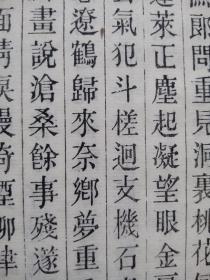 郎問重見洞裏桃花
蓬萊正塵起凝望眼金
氣犯斗槎迴支機石
遼鶴歸來奈鄉夢重
畫說滄桑餘事殘遂
面情淚漫倚酒聊